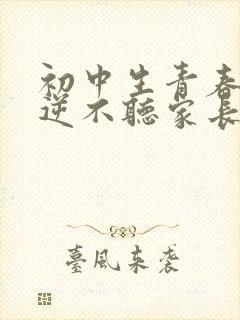 初中生青春
逆不聽家長
臺風來襲